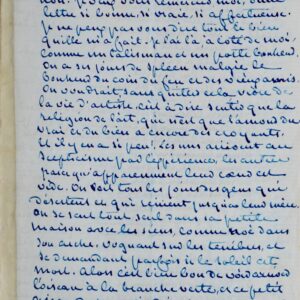 lettre si bonne, si vraie, si affectueuse.
Je ne peux pas vous dire tout le bien
qu'elle m'a fait. Je l'ai là à côté de moi,
comme un talisman et un porte bonheur.
On a ses jours de spleen malgré le
bonheur du coin du feu et des vieux amis
On voudrait, sans quitter cela la vie de
la vie d'artiste, c'est à dire sentir que la
religion de l'art, qui n'est que l'amour du
vrai et du bien a encore des croyants.
Et il y en a si peu! Les uns arrivent au
scepticisme par l'expérience, les autres
parce qu'ils apportent leur cœur est
vide. On voit tous les jours des gens qui
désertent et qui renient jusqu'à leur mère.
On se sent tout seul dans sa petite
maison avec les siens, comme Noé dans
son arche, voguant sur les ténèbres, et
se demandant parfois si le soleil est
mort. Alors c'est bien bon de voir arriver
l'oiseau à la branche verte, et ce petit